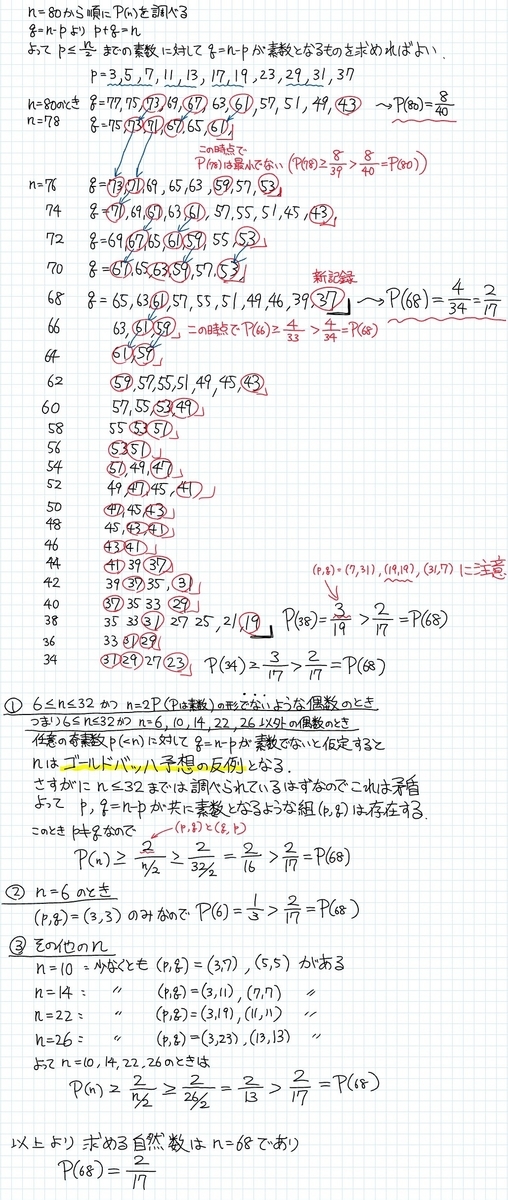 n=80から順にP(n)を調べる
q=n-pより p+q=n
よって p≤n/2 までの素数に対して q=n-p が素数となるものを求めればよい.
p=3,5,7,11,13,17,19,23,29,31,37
n=80のとき q=77,75,73,69,67,63,61,57,51,49,43 〜→P(80)=8/40
n=78 q=75,73,71,67,65,61
この時点で
P(78)は最小でない (P(78)≥8/39>8/40=P(80))
n=76 q=73,71,69,65,63,59,57,53
74 q=71,69,67,63,61,57,55,51,45,43
72 q=69,67,65,61,59,55,53
70 q=67,65,63,59,57,53
新記録
68 q=65,63,61,57,55,51,49,46,39,37 〜→P(68)=4/34=2/17
66 63,61,59 この時点でP(66)≥4/33>4/34=P(68)
64 61,59
62 59,57,55,51,49,45,43
60 57,55,53,49
58 55 53 51
56 53 51
54 51,49,47
52 49,47,45,41
50 47,45,43
48 45,43,41
46 43 41
44 41 39 37
(p,q)=(7,31),(19,19),(31,7)に注意
42 39 37 35,31
40 37 35 33 29
38 35 33 31 27 25,21,19 P(38)=3/19>2/17=P(68)
36 33 31 29
34 31 29 27 23 P(34)≥3/17>2/17=P(68)
...
① 6≤n≤32 かつ n=2P(Pは素数)の形でないような偶数のとき
つまり6≤n≤32かつ n=6,10,14,22,26以外の偶数のとき
任意の奇素数p(<n)に対して q=n-pが素数でないと仮定すると
nはゴールドバッハ予想の反例となる.
さすがに n≤32までは調べられているはずなのでこれは矛盾
よって p,q=n-pが共に素数となるような組(p,q)は存在する.
このとき p≠qなので (p,q)と(q,p)
P(n)≥2/(n/2)≥2/(32/2)=2/16>2/17=P(68)
② n=6のとき
(p,q)=(3,3)のみなので P(6)=1/3>2/17=P(68)
③ その他のn
n=10:少なくとも (p,q)=(3,7),(5,5)がある
n=14: 〃 (p,q)=(3,11),(7,7) 〃
n=22: 〃 (p,q)=(3,19),(11,11) 〃
n=26: 〃 (p,q)=(3,23),(13,13) 〃
よって n=10,14,22,26のときは
P(n)≥2/(n/2)≥2/(26/2)=2/13>2/17=P(68)
以上より 求める自然数は n=68であり
P(68)=2/17